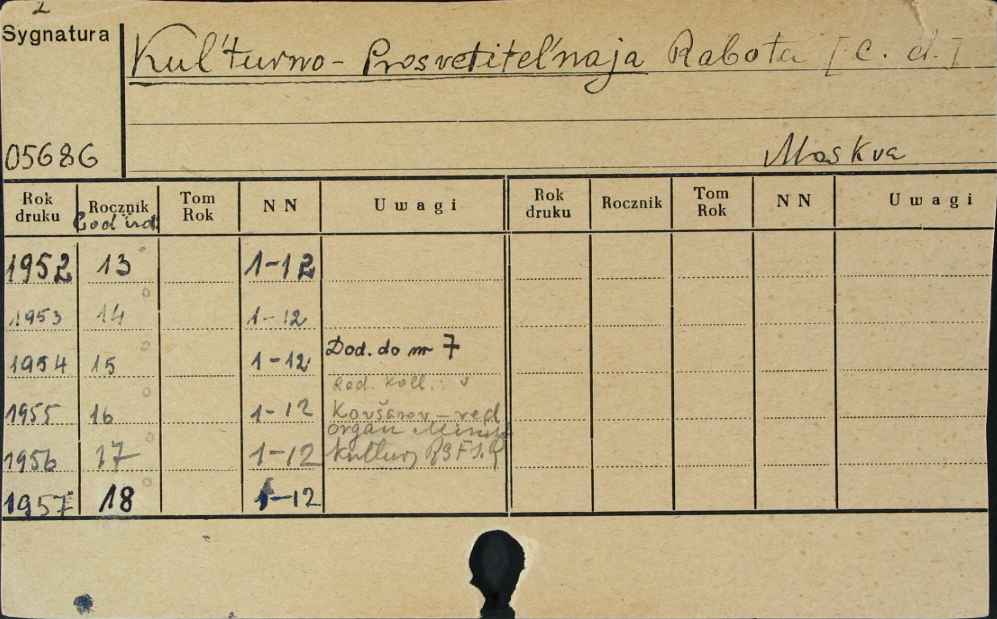 2
Sygnatura
Kul'turno-Prosvetitel'naja Rabota [C. d.]
05686
Moskva
Rok druku Rocznik Tom Rok NN Uwagi Rok druku Rocznik Tom Rok NN Uwagi
God izd.
1952 13 1-12
1953 14 1-12
1954 15 1-12 Dod. do nr 7
Red. Koll.: v
1955 16 1-12 Kovšarov - red
organ Minist
1956 17 1-12 kultury RSFSR
1957 18 1-12